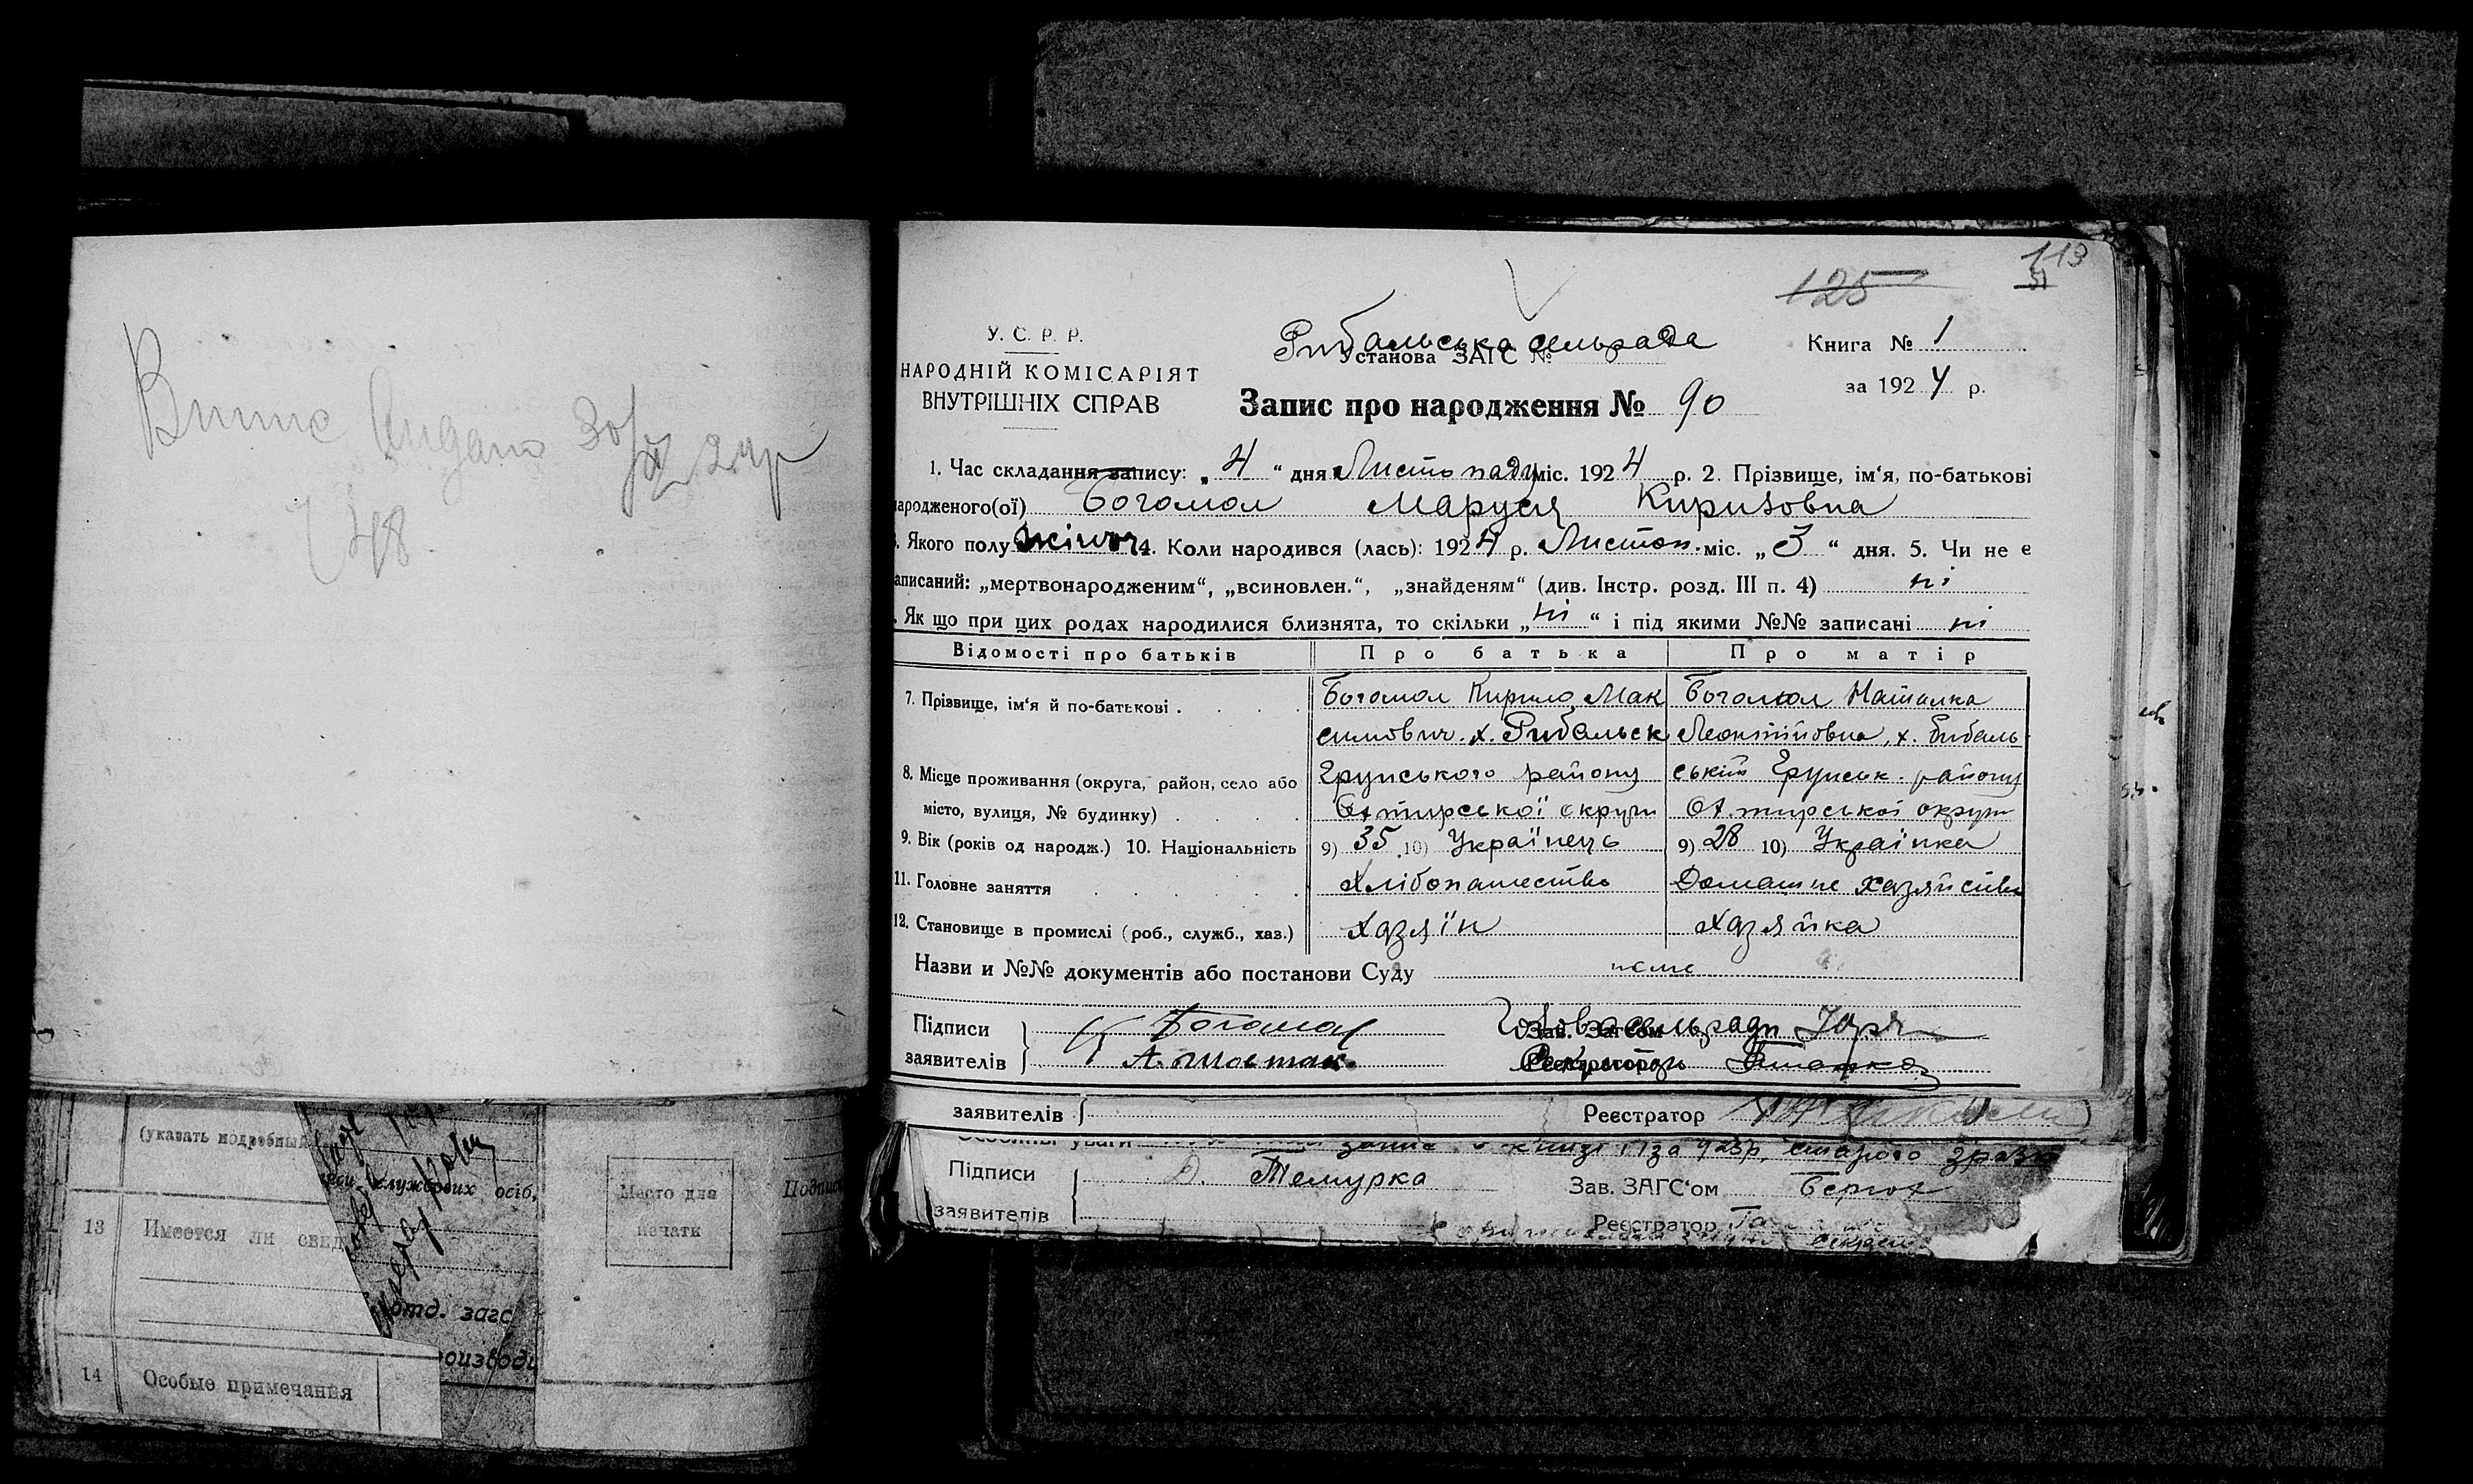 Випис видано 30/XI 24р
748
113
51
125
У. С. Р. Р.
НАРОДНІЙ КОМІСАРІЯТ
ВНУТРІШНІХ СПРАВ
Рибальська сільрада
Установа ЗАГС №
Книга № 1
за 1924 р.
Запис про народження № 90
1. Час складання запису: „ 4 “ дня Листопаду міс. 1924 р. 2. Прізвище, ім‘я, по-батькові
народженого(ої) Богомол Маруся Кириловна
Якого полу жіноч 4. Коли народився (лась): 1924 р. Листоп. міс. „ 3 “ дня. 5. Чи не є
записаний: „мертвонародженим“, „всиновлен.“, „знайденям“ (див. Інстр. розд. III п. 4) ні
Як що при цих родах народилися близнята, то скільки „ ні “ і під якими №№ записані ні
Відомості про батьків Про батька Про матір
7. Прізвище, ім‘я й по-батькові Богомол Кирило Мак Богомол Наталка
симович. х. Рибальск Леонтіївна, х. Рибаль
8. Місце проживання (округа, район, село або Грунського району ський Грунськ. району
місто, вулиця, № будинку) Охтирської округи Охтирської округи
9. Вік (років од народж.) 10. Національність 9) 35 10) Українець 9) 28 10) Українка
11. Головне заняття Хлібопашество Домашне хазяйство
12. Становище в промислі (роб., служб., хаз.) Хазяїн Хазяйка
Назви и №№ документів або постанови Суду нема
Підписи Богомол Голова сільради
Зав. Загсом
заявителів А. Шостак Секретарь
Реєстратор
заявителів Реєстратор
Особливі уваги запис в книзі 1 за 923р. старого зразк
Підписи Д. Темурка Зав. ЗАГС‘ом
заявителів Реєстратор
(указать подробный
службових осіб,
Место для
печати
Подпис
13 Имеется ли свед
отд. загс
14 Особые примечания